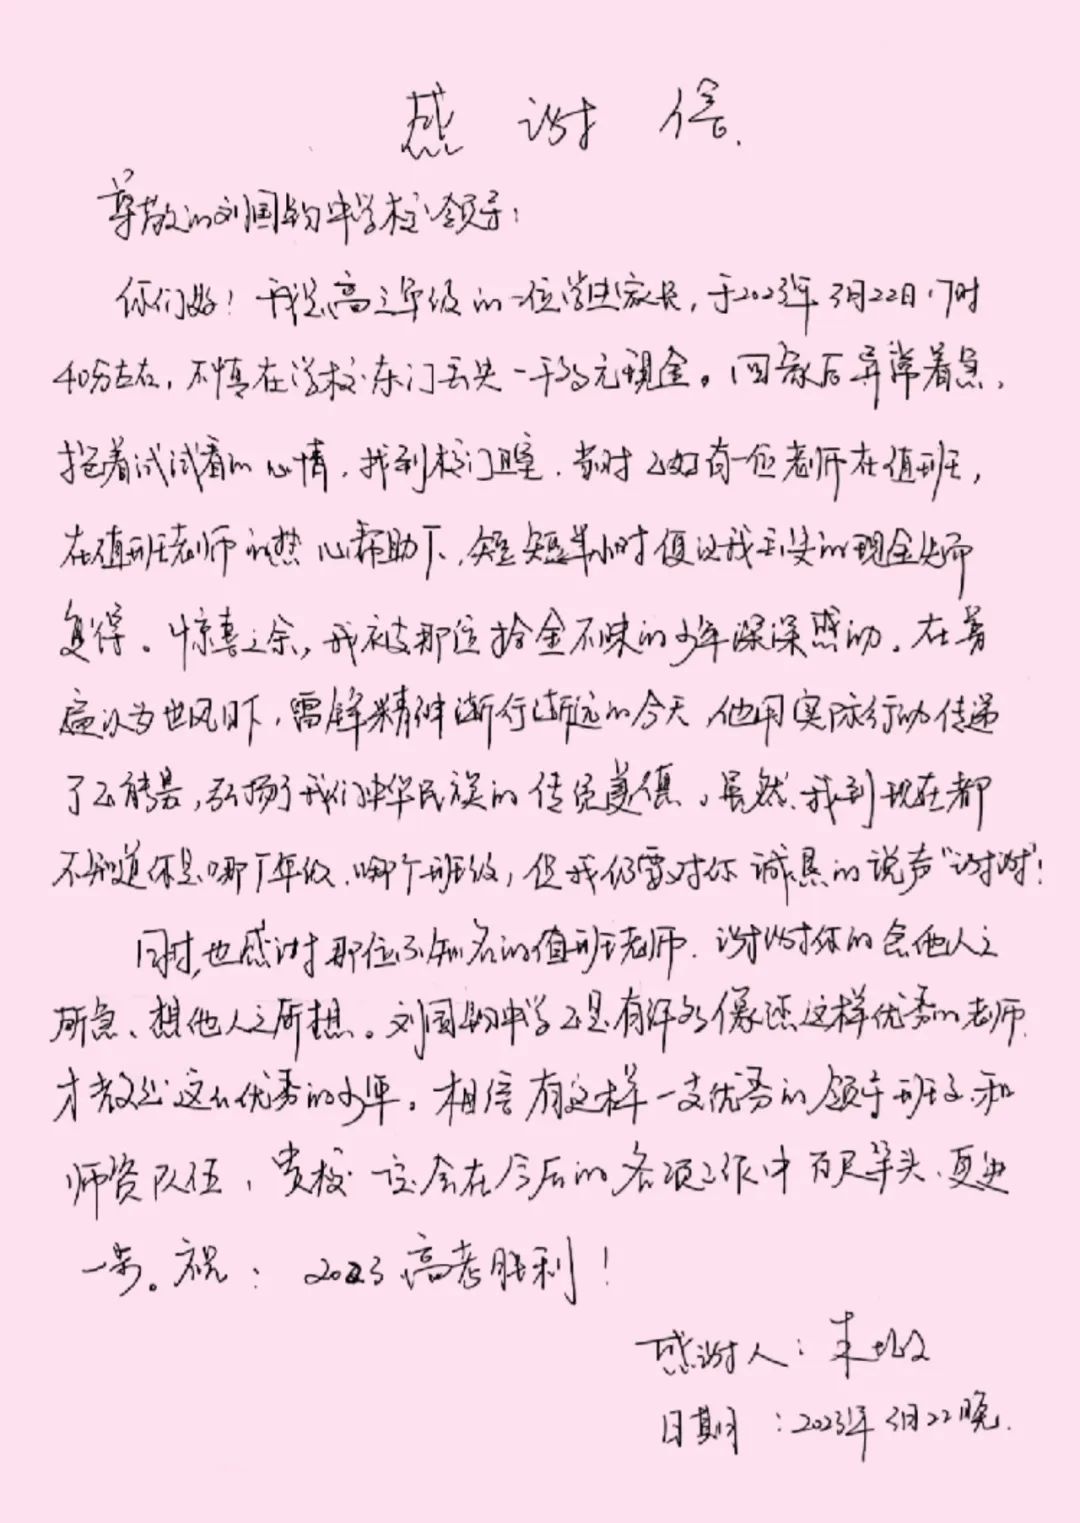 感谢信
尊敬的刘国钧中学校领导：
你们好！我是高三年级的一位学生家长，于2023年3月22日17时
40分左右，不慎在学校东门丢失一千多元现金。回家后异常着急，
抱着试试看的心情，找到校门卫室，当时正好有一位老师在值班，
在值班老师的热心帮助下，短短半小时便让我丢失的现金失而
复得。惊喜之余，我被那位拾金不昧的少年深深感动。在普
遍认为世风日下，雷锋精神渐行渐远的今天，他用实际行动传递
了正能量，弘扬了我们中华民族的传统美德。虽然，我到现在都
不知道你是哪个年级、哪个班级，但我仍要对你诚恳的说声“谢谢”！
同时，也感谢那位不知名的值班老师，谢谢你的急他人之
所急、想他人之所想。刘国钧中学正是有许多像您这样优秀的老师，
才教出这么优秀的少年。相信有这样一支优秀的领导班子和
师资队伍，贵校一定会在今后的各项工作中百尺竿头、更进
一步。祝：2023高考胜利！
感谢人：朱
日期：2023年3月22晚.